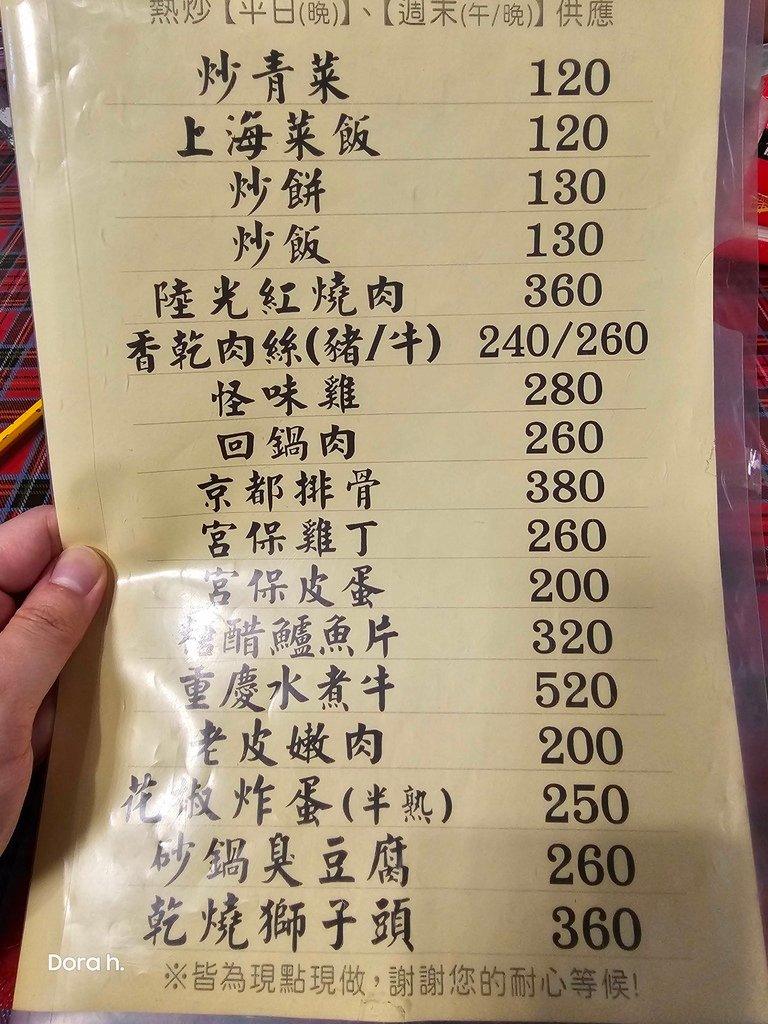 熱炒【平日(晚)】、【週末(午/晚)】供應
炒青菜 120
上海菜飯 120
炒餅 130
炒飯 130
陸光紅燒肉 360
香乾肉絲(豬/牛) 240/260
怪味雞 280
回鍋肉 260
京都排骨 380
宮保雞丁 260
宮保皮蛋 200
糖醋鱸魚片 320
重慶水煮牛 520
老皮嫩肉 200
花椒炸蛋(半熟) 250
砂鍋臭豆腐 260
乾燒獅子頭 360
※皆為現點現做，謝謝您的耐心等候!
Dora h.